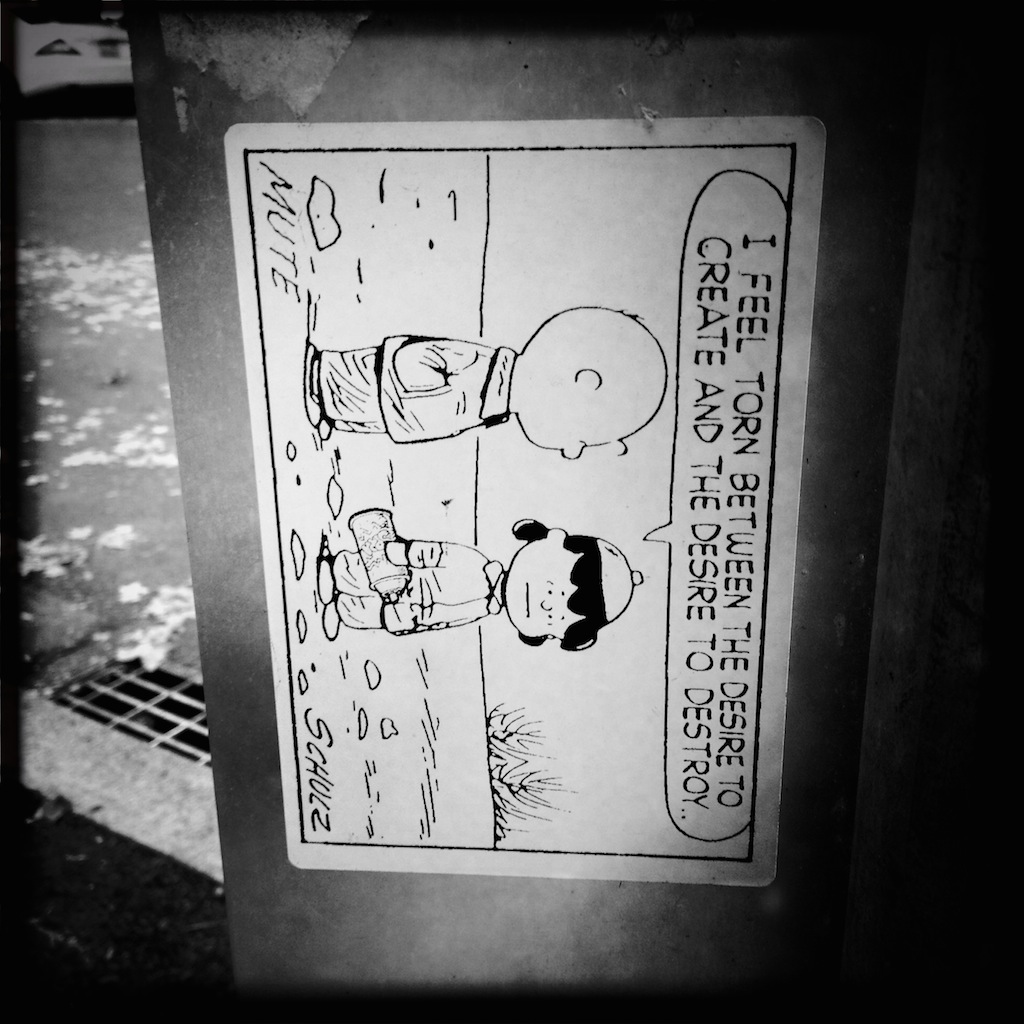 I FEEL TORN BETWEEN THE DESIRE TO
CREATE AND THE DESIRE TO DESTROY..
MUTE
SCHULZ